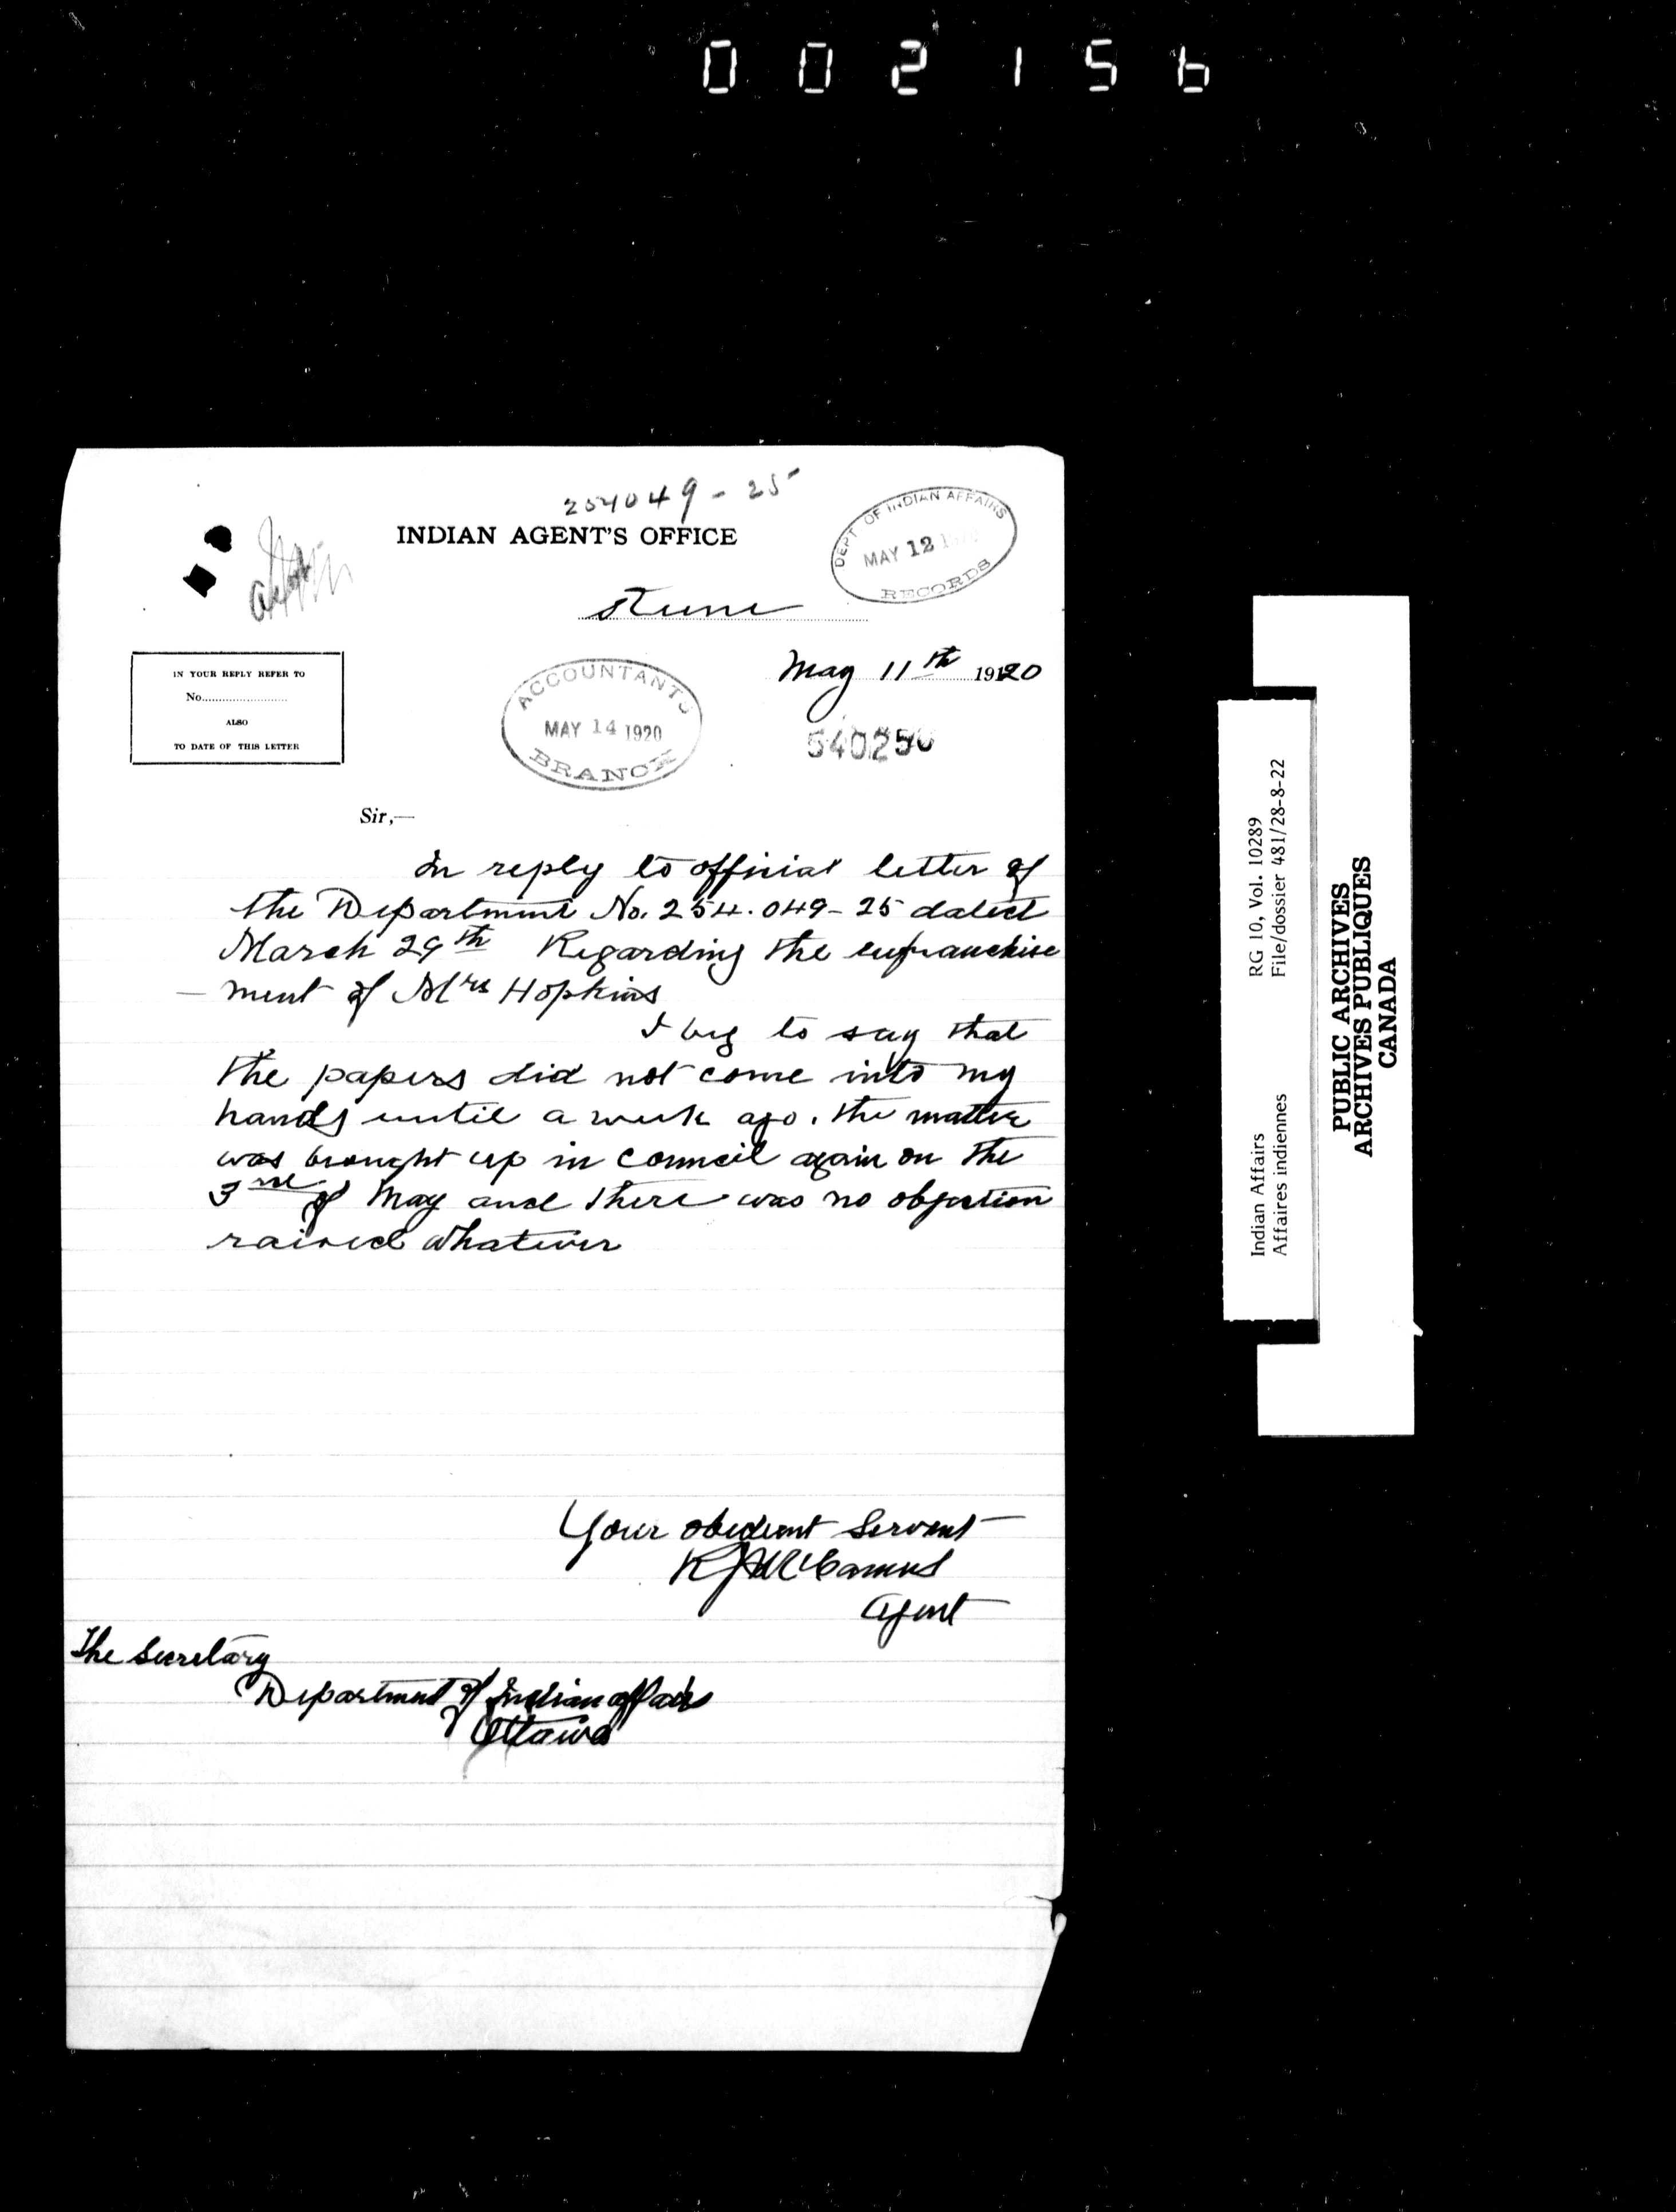 002156
254049-25
INDIAN AGENT'S OFFICE
DEPT. OF INDIAN AFFAIRS
MAY 12 19
RECORDS
May 11th 1920
IN YOUR REPLY REFER TO
No.
ALSO
TO DATE OF THIS LETTER
ACCOUNTANTS
MAY 14 1920
BRANCH
540250
Sir,—
In reply to official letter of
the Department No. 254.049-25 dated
March 29th Regarding the enfranchise
-ment of Mrs Hopkins
I beg to say that
the papers did not come into my
hands until a week ago. the matter
was brought up in council again on the
3rd of May and there was no objection
raised whatever
Your obedient Servant
R J McCamus
Agent
The Secretary
Department of Indian Affairs
Ottawa
Indian Affairs RG 10, Vol. 10289
Affaires indiennes File/dossier 481/28-8-22
PUBLIC ARCHIVES
ARCHIVES PUBLIQUES
CANADA